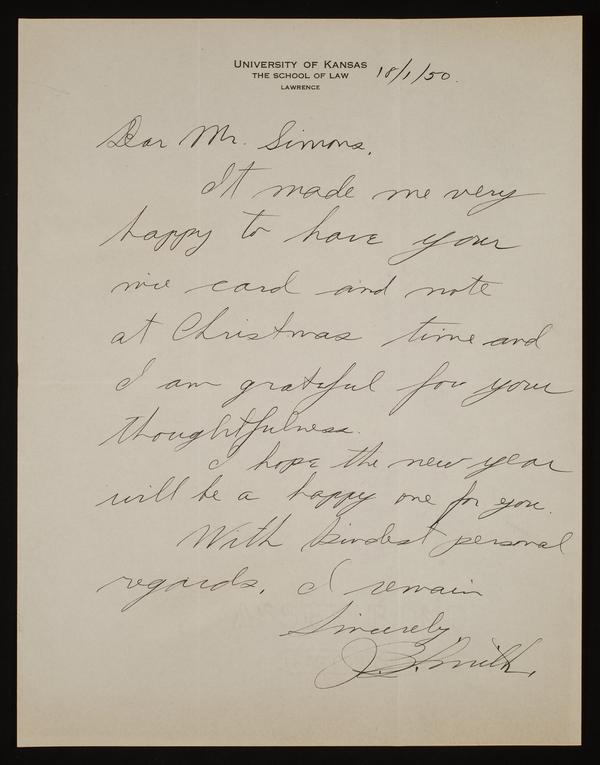 UNIVERSITY OF KANSAS
THE SCHOOL OF LAW
LAWRENCE
18/1/50.
Dear Mr. Simons,
It made me very
happy to have your
nice card and note
at Christmas time and
I am grateful for your
thoughtfulness.
I hope the new year
will be a happy one for you.
With kindest personal
regards, I remain
Sincerely,
J. E. Smith.